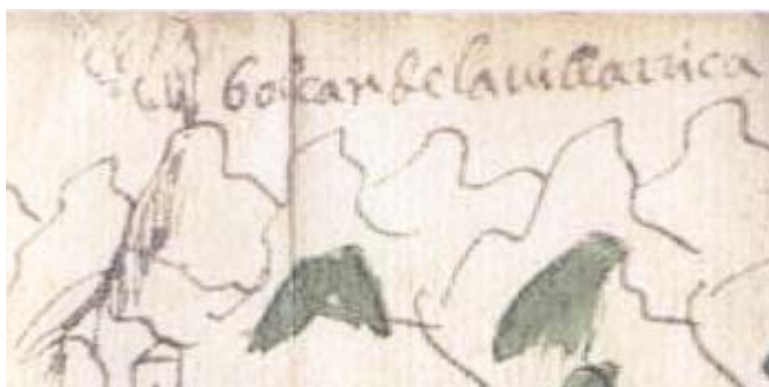 bolcan de la uillarrica